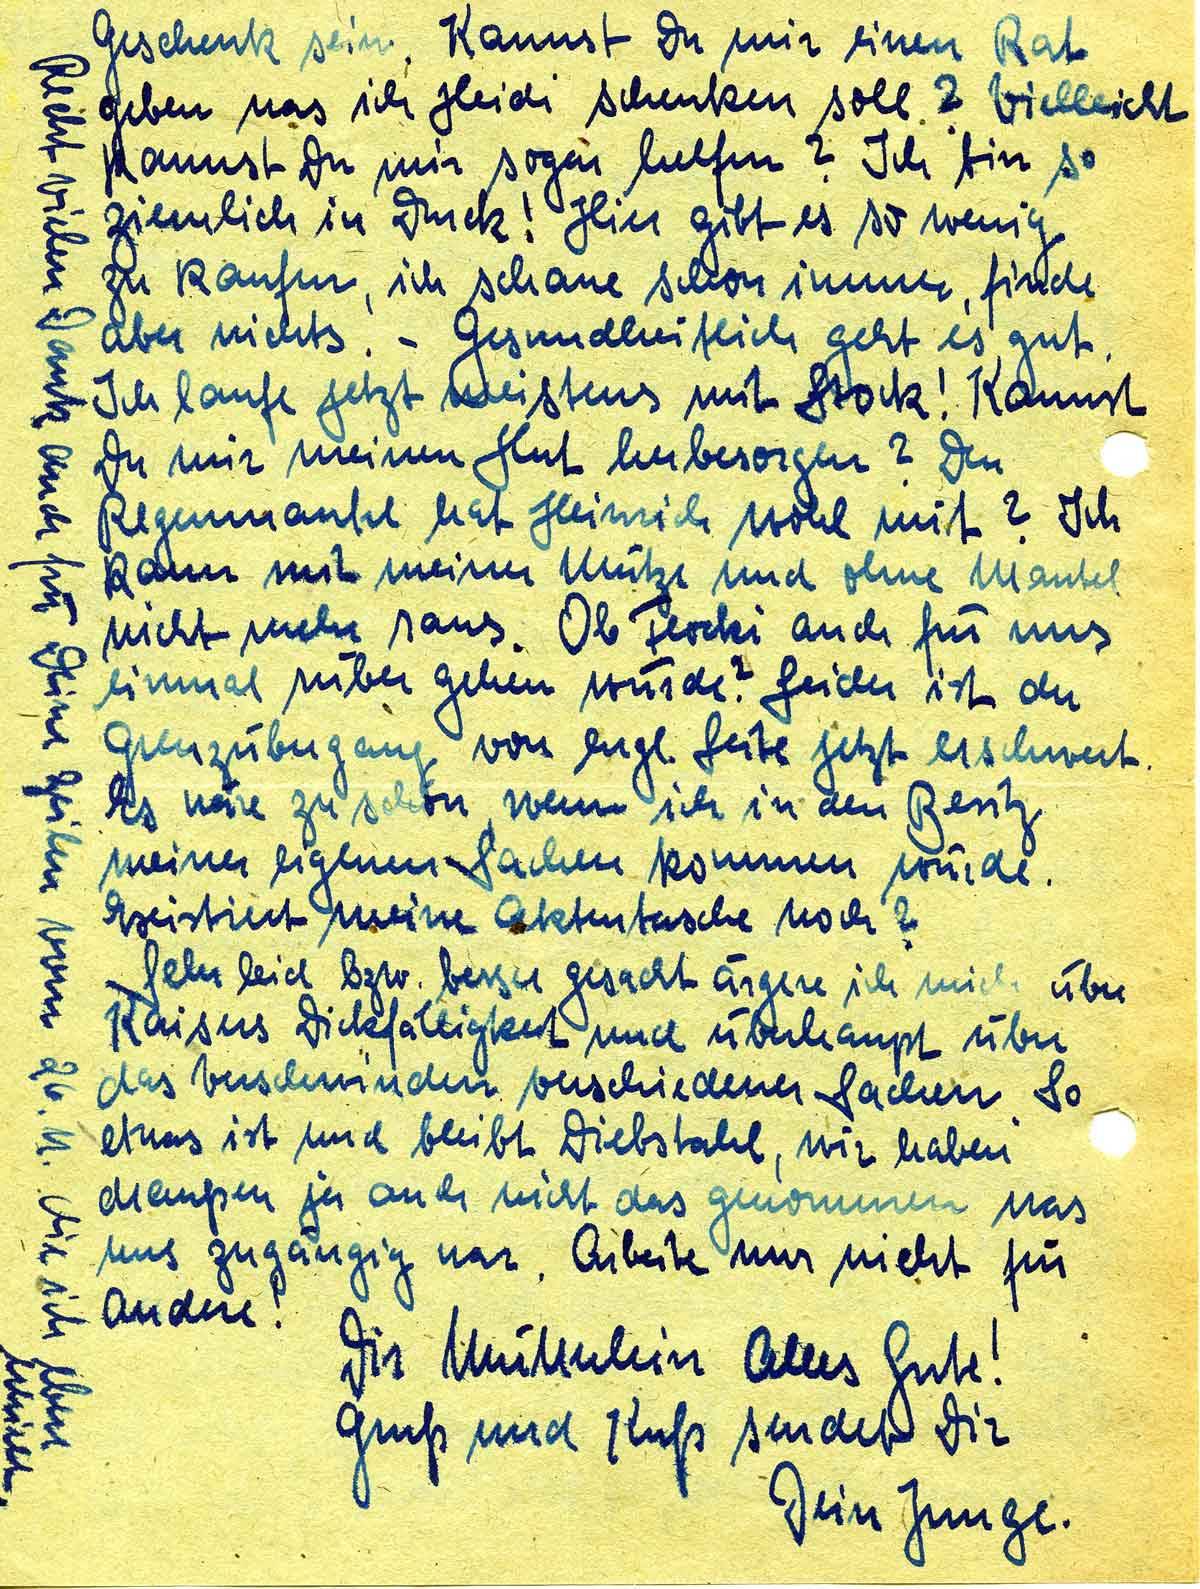 Geschenk sein. Kannst Du mir einen Rat
geben was ich Heidi schenken soll? Vielleicht
kannst Du mir sogar helfen? Ich bin so
ziemlich in Druck! Hier gibt es so wenig
zu kaufen, ich schaue schon immer, finde
aber nichts. - Gesundheitlich geht es gut.
Ich laufe jetzt meistens mit Stock! Kannst
Du mir meinen Hut herbesorgen? Den
Regenmantel hat Heinrich wohl mit? Ich
kann mit meiner Mütze und ohne Mantel
nicht mehr raus. Ob Flocki auch für uns
einmal rüber gehen würde? Leider ist der
Grenzübergang von engl. Seite jetzt erschwert.
Es wäre zu schön, wenn ich in den Besitz
meiner eigenen Sachen kommen würde.
Existiert meine Aktentasche noch?
Sehr leid bzw. besser gesacht ärgere ich mich über
Kaisers Dickfälligkeit und überhaupt über
das Verschwinden verschiedener Sachen. So
etwas ist und bleibt Diebstahl, wir haben
draußen ja auch nicht das genommen was
uns zugängig war. Arbeite nur nicht für
Andere!
Dir Mütterlein Alles Gute!
Gruß und Kuß sendet Dir
Dein Junge.
Recht vielen Dank auch für Deine Zeilen vom 26.11. die ich eben
erhielt.